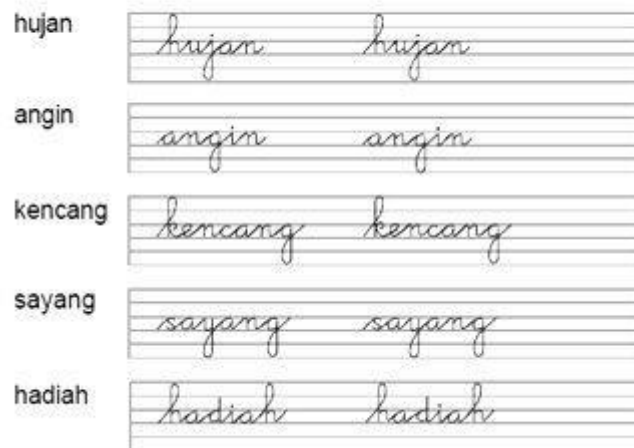 hujan hujan hujan
angin angin angin
kencang kencang kencang
sayang sayang sayang
hadiah hadiah hadiah